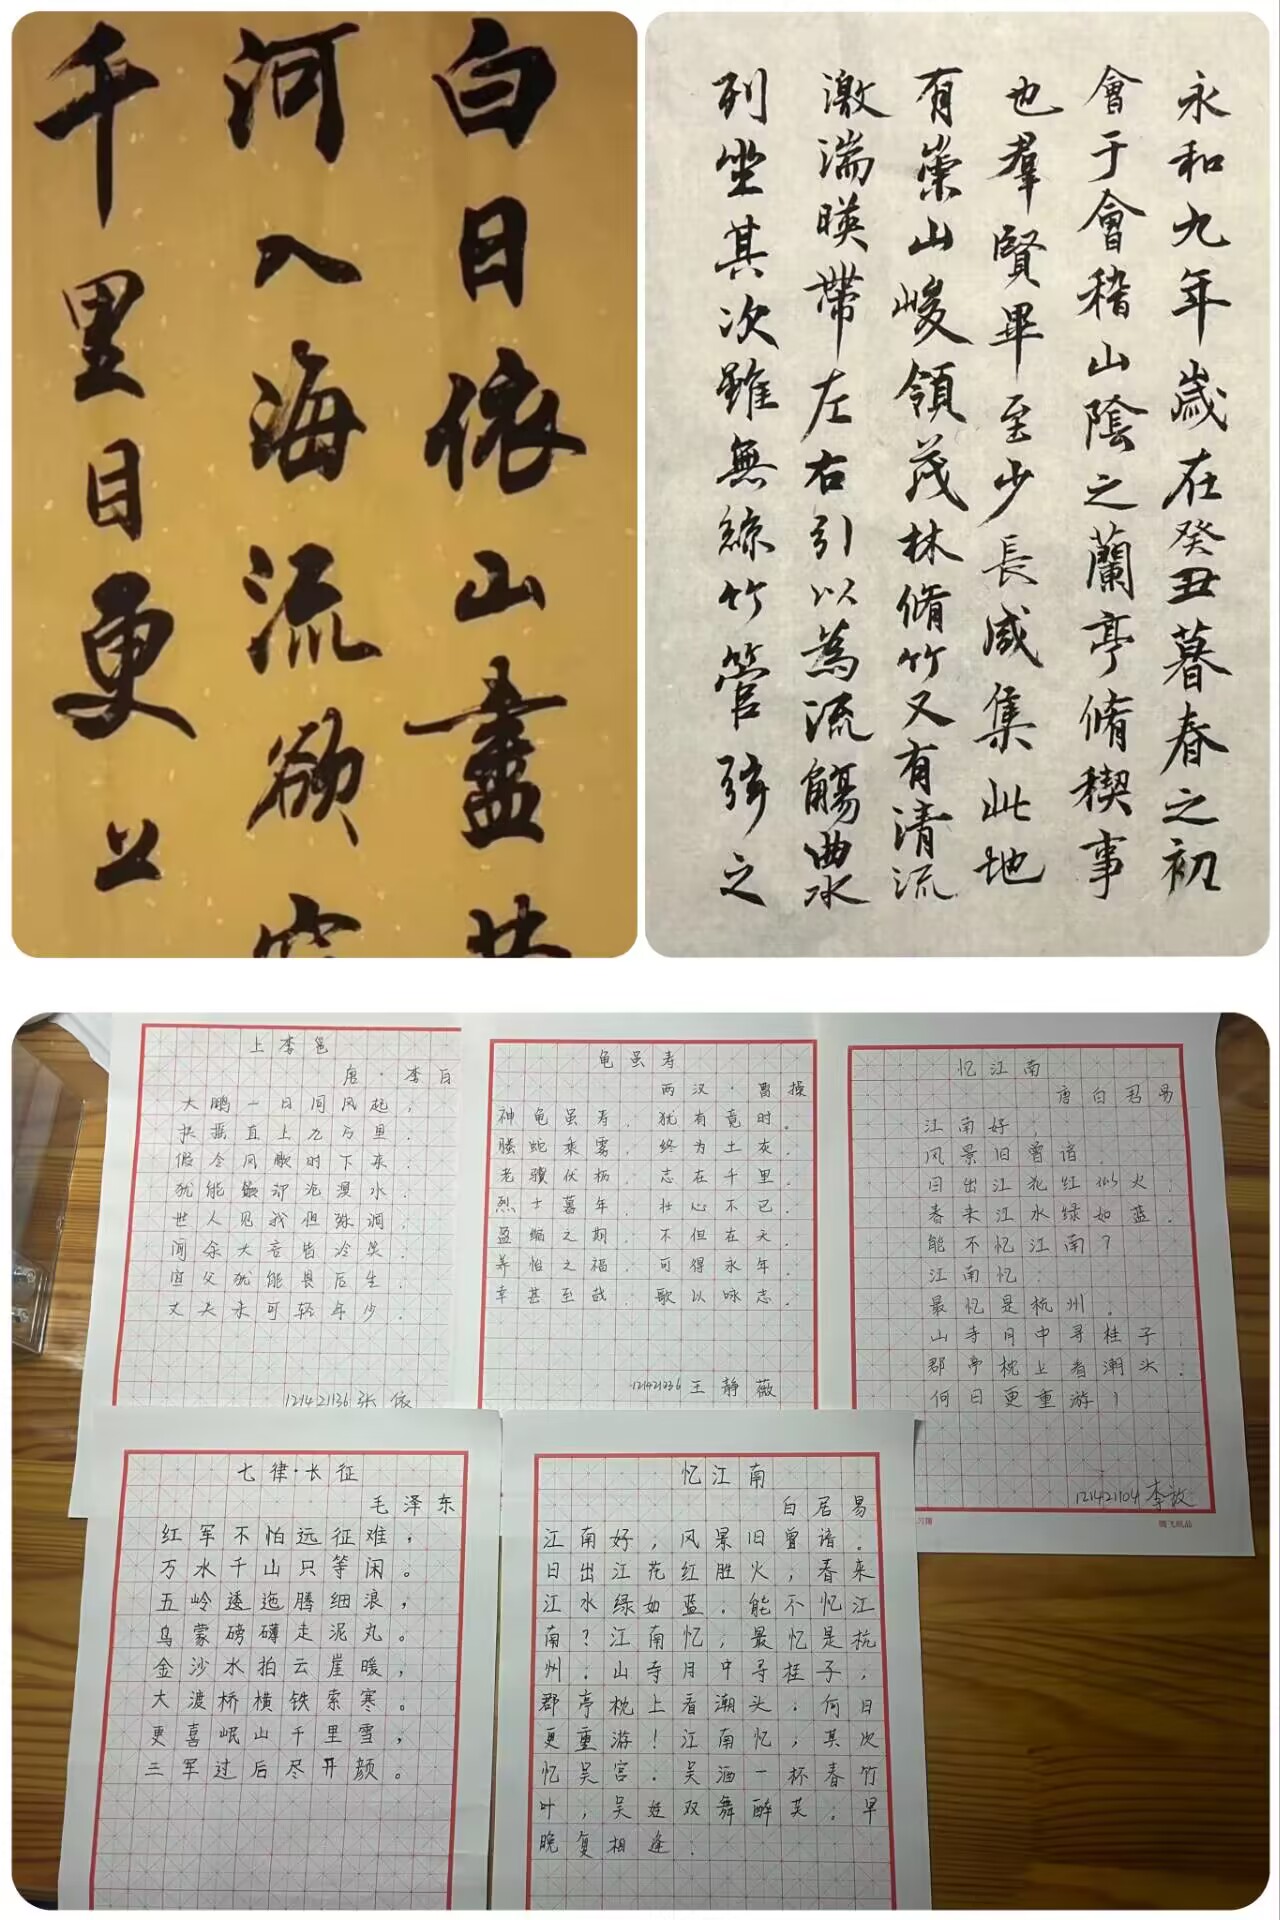 白日依山盡黄
河入海流欲窮
千里目更上
永和九年歲在癸丑暮春之初
會于會稽山陰之蘭亭脩稧事
也羣賢畢至少長咸集此地
有崇山峻領茂林脩竹又有清流
激湍暎帶左右引以為流觴曲水
列坐其次雖無絲竹管弦之
上李邕
唐·李白
大鹏一日同风起，
扶摇直上九万里.
假令风歇时下来.
犹能簸却沧溟水.
世人见我恒殊调，
闻余大言皆冷笑.
宣父犹能畏后生.
丈夫未可轻年少.
121421136张依
龟虽寿
两汉·曹操
神龟虽寿，犹有竟时。
螣蛇乘雾，终为土灰.
老骥伏枥，志在千里.
烈士暮年，壮心不已.
盈缩之期，不但在天.
养怡之福，可得永年.
幸甚至哉，歌以咏志.
121421236王静薇
忆江南
唐白居易
江南好，
风景旧曾谙.
日出江花红似火，
春来江水绿如蓝.
能不忆江南？
江南忆.
最忆是杭州。
山寺月中寻桂子，
郡亭枕上看潮头.
何日更重游！
121421104李放
习簿
腾飞纸品
七律·长征
毛泽东
红军不怕远征难，
万水千山只等闲。
五岭逶迤腾细浪，
乌蒙磅礴走泥丸。
金沙水拍云崖暖，
大渡桥横铁索寒。
更喜岷山千里雪，
三军过后尽开颜。
忆江南
白居易
江南好，风景旧曾谙.
日出江花红胜火，春来
江水绿如蓝.能不忆江
南？江南忆，最忆是杭
州.山寺月中寻桂子，
郡亭枕上看潮头.何日
更重游！江南忆，其次
忆吴宫.吴酒一杯春竹
叶，吴娃双舞醉芙.早
晚复相逢！